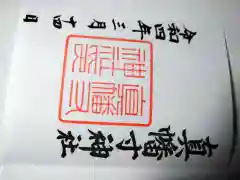 真幡寸神社
令和四年三月十四日